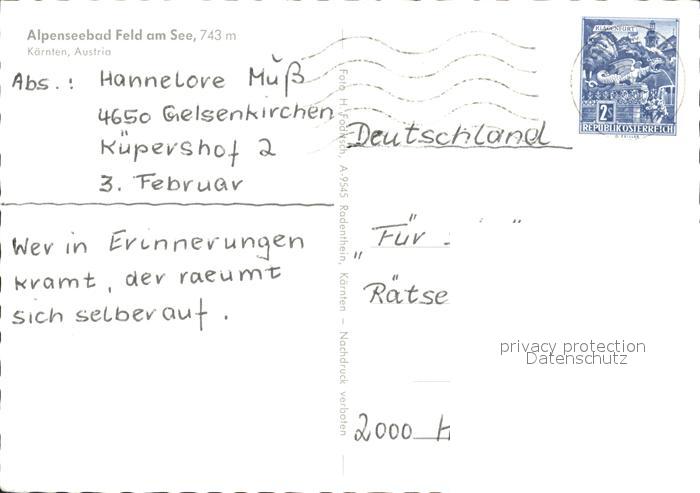 Alpenseebad Feld am See, 743 m
Kärnten, Austria
Abs.: Hannelore Muß
4650 Gelsenkirchen
Küpershof 2
3. Februar
Wer in Erinnerungen
kramt, der raeumt
sich selber auf.
Foto H. Fodisch, A-9545 Radenthein, Kärnten – Nachdruck verboten
KLAGENFURT
2S
REPUBLIK ÖSTERREICH
Deutschland
„Für "
Rätse
privacy protection
Datenschutz
2000